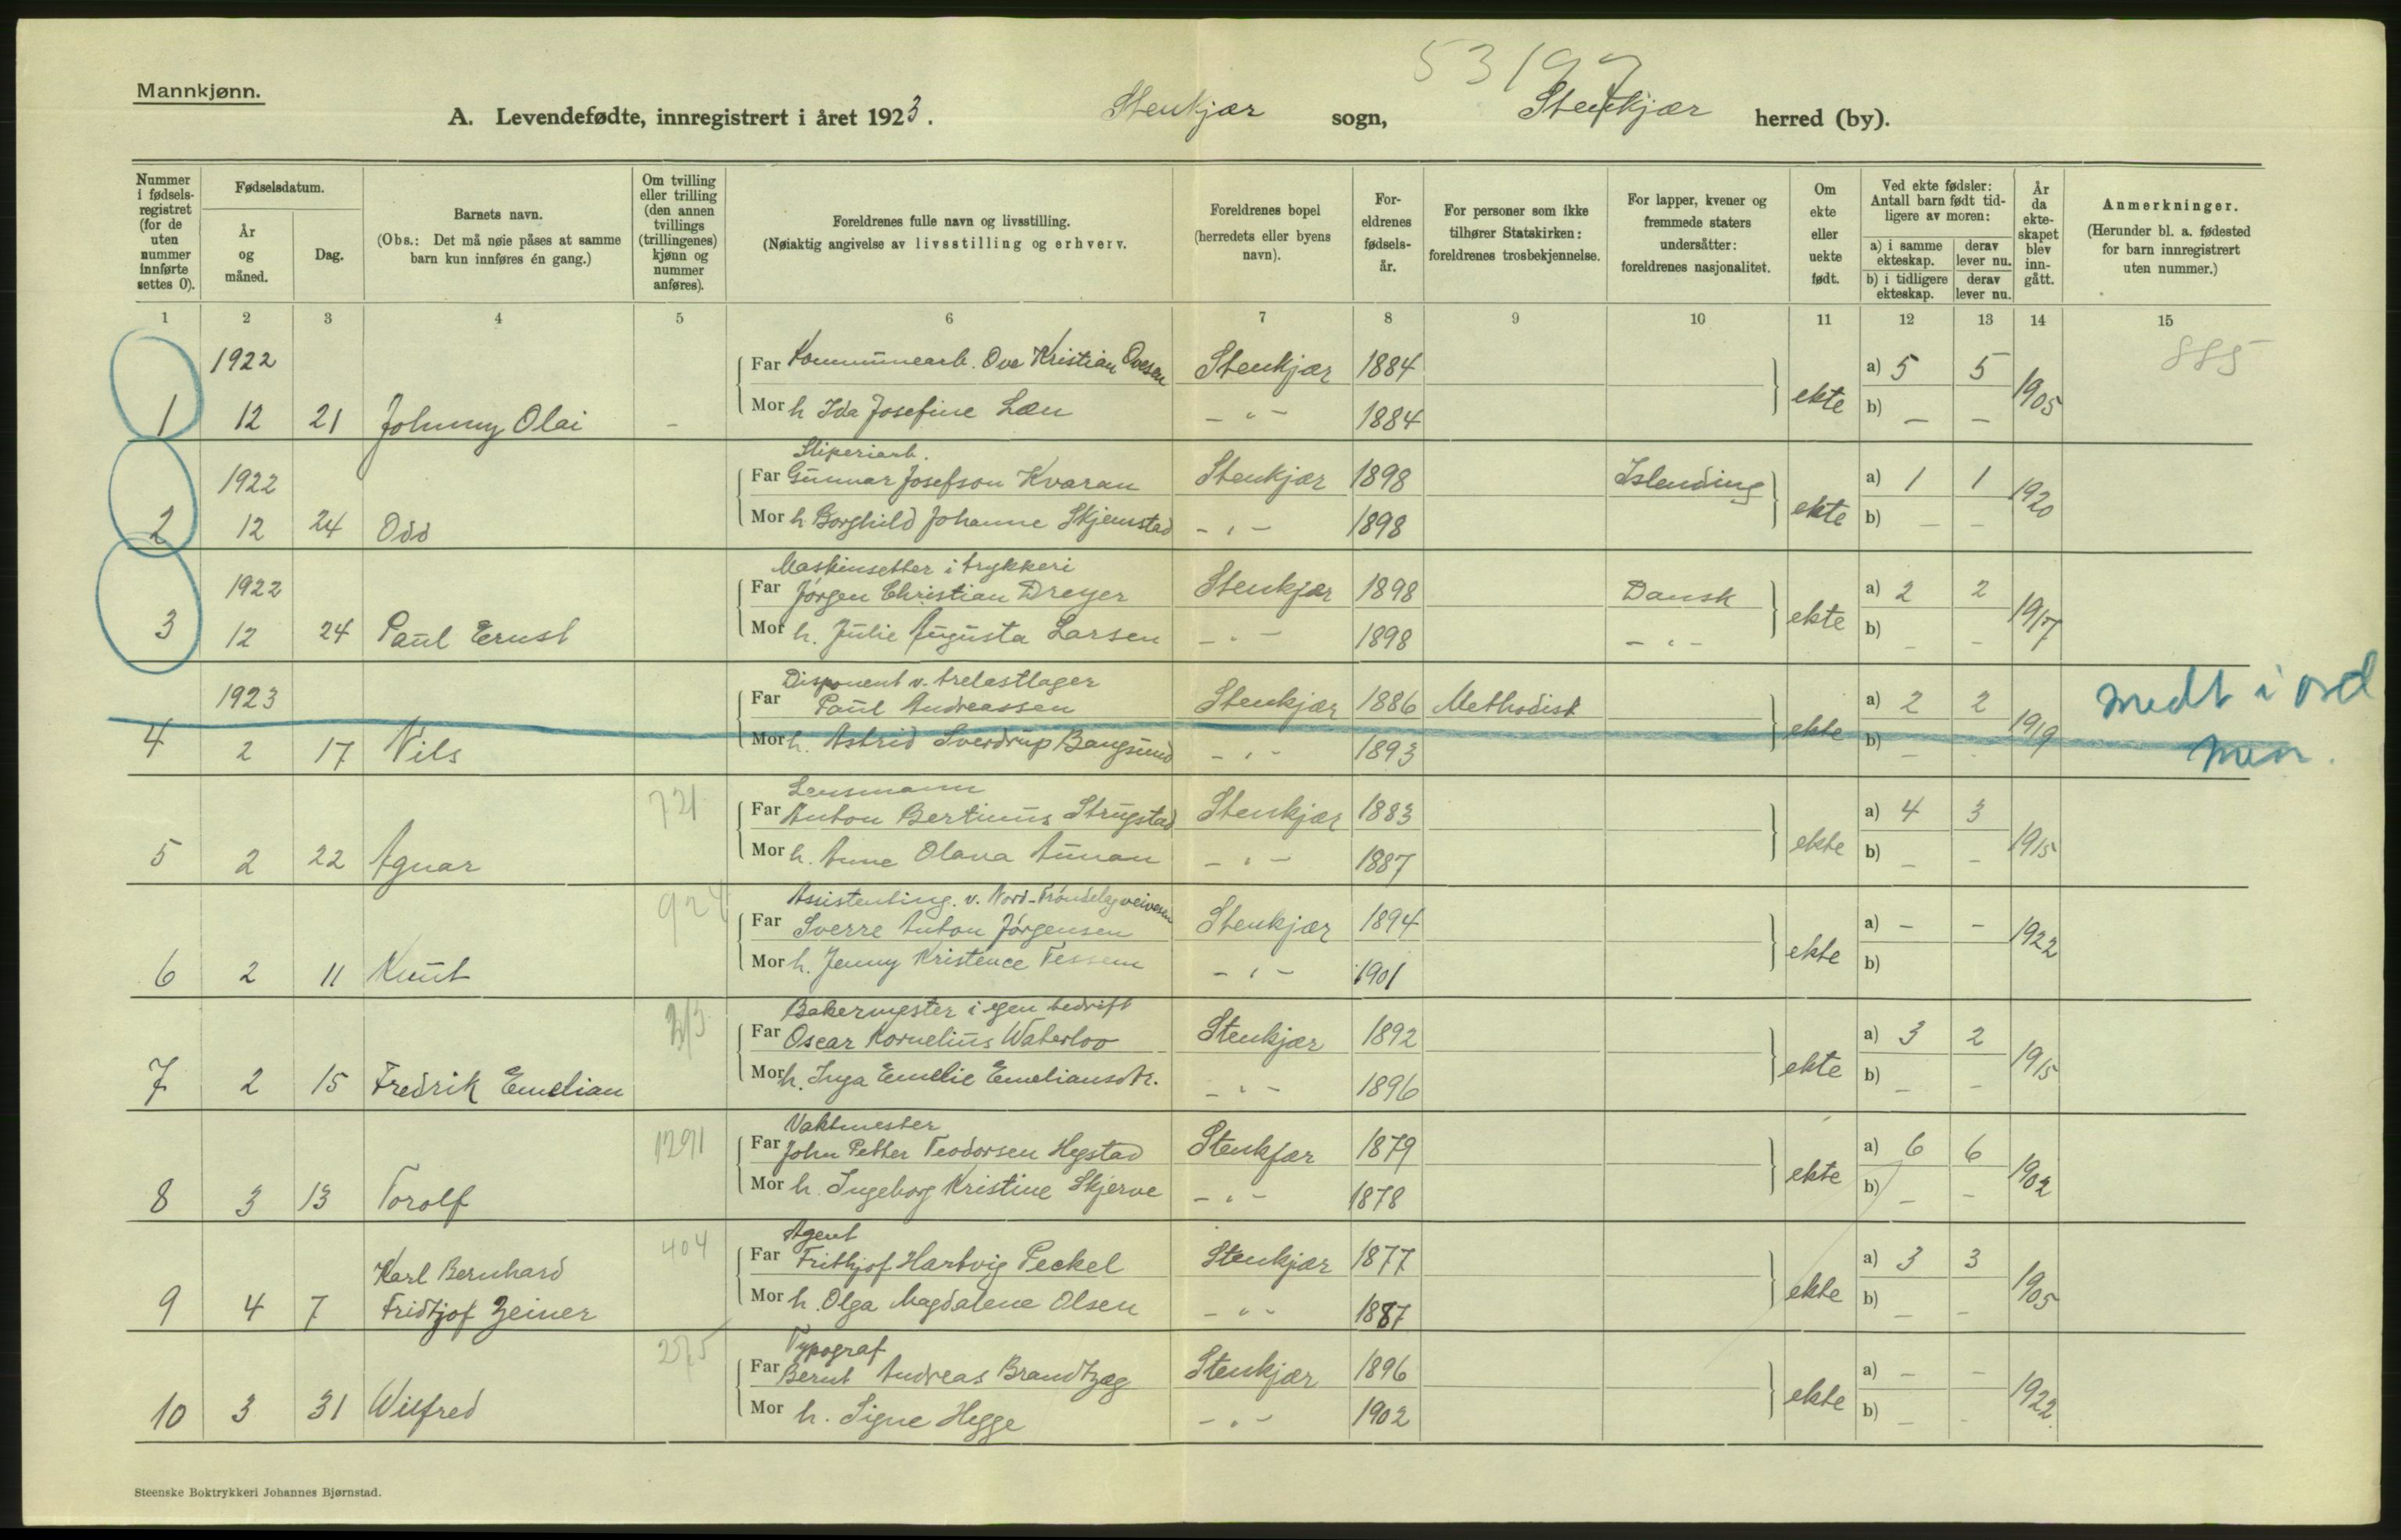 5319
Mannkjønn.
A. Levendefødte, innregistrert i året 1923. Stenkjær sogn, Stenkjær herred (by).
Nummer i fødsels-registret (for de uten nummer innførte settes 0).
Fødselsdatum.
År og måned.
Dag.
Barnets navn.
(Obs.: Det må nøie påses at samme barn kun innføres én gang.)
Om tvilling eller trilling (den annen tvillings (trillingenes) kjønn og nummer anføres).
Foreldrenes fulle navn og livsstilling.
(Nøiaktig angivelse av livsstilling og erhverv.
Foreldrenes bopel (herredets eller byens navn).
For-eldrenes fødsels-år.
For personer som ikke tilhører Statskirken: foreldrenes trosbekjennelse.
For lapper, kvener og fremmede staters undersåtter: foreldrenes nasjonalitet.
Om ekte eller uekte født.
Ved ekte fødsler: Antall barn født tid-ligere av moren:
a) i samme ekteskap. derav lever nu.
b) i tidligere ekteskap. derav lever nu.
År da ekte-skapet blev inn-gått.
Anmerkninger.
(Herunder bl. a. fødested for barn innregistrert uten nummer.)
1 2 3 4 5 6 7 8 9 10 11 12 13 14 15
1922 Far Kommunearb. Ove Kristian Ovesen Stenkjær 1884 a) 5 5 885
1 12 21 Johnny Olai - Mor h Ida Josefine Læn - " - 1884 ekte b) - - 1905
Sliperiarb.
1922 Far Gunnar Josefson Kvaran Stenkjær 1898 Islending a) 1 1
2 12 24 Odd Mor h Borghild Johanne Skjemstad - " - 1898 ekte b) - - 1920
Maskinsetter i trykkeri
1922 Far Jörgen Christian Dreyer Stenkjær 1898 Dansk a) 2 2
3 12 24 Paul Ernst Mor h. Julie Augusta Larsen - " - 1898 - " - ekte b) - - 1917
Disponent v. trelastlager
1923 Far Paul Andreassen Stenkjær 1886 Methodist a) 2 2 medt i ord
4 2 17 Nils Mor h. Astrid Sverdrup Bangsund - " - 1893 ekte b) - - 1919
Lensmann
721 Far Anton Bertinus Strugstad Stenkjær 1883 a) 4 3
5 2 22 Agnar Mor h. Anne Olava Aunan - " - 1887 ekte b) - - 1915
Assistenting. v. Nord-Tröndelag veivesen
924 Far Sverre Anton Jörgensen Stenkjær 1894 a) - -
6 2 11 Knut Mor h. Jenny Kristence Tessem - " - 1901 ekte b) 1922
Bakermester i egen bedrift
Far Oscar Kornelius Waterloo Stenkjær 1892 a) 3 2
7 2 15 Fredrik Emelian Mor h. Inga Emelie Emeliansdtr. - " - 1896 ekte b) - - 1915
Vaktmester
1291 Far John Petter Teodorsen Hegstad Stenkjær 1879 a) 6 6
8 3 13 Torolf Mor h. Ingeborg Kristine Skjerve - " - 1878 ekte b) - - 1902
Agent
404 Far Frithjof Hartvig Peckel Stenkjær 1877 a) 3 3
Karl Bernhard
9 4 7 Fridtjof Zeiner Mor h. Olga Magdalene Olsen - " - 1887 ekte b) - - 1905
Typograf
Far Bernt Andreas Brandtzæg Stenkjær 1896 a) - -
10 3 31 Wilfred Mor h. Signe Hegge - " - 1902 ekte b) - - 1922.
Steenske Boktrykkeri Johannes Bjørnstad.